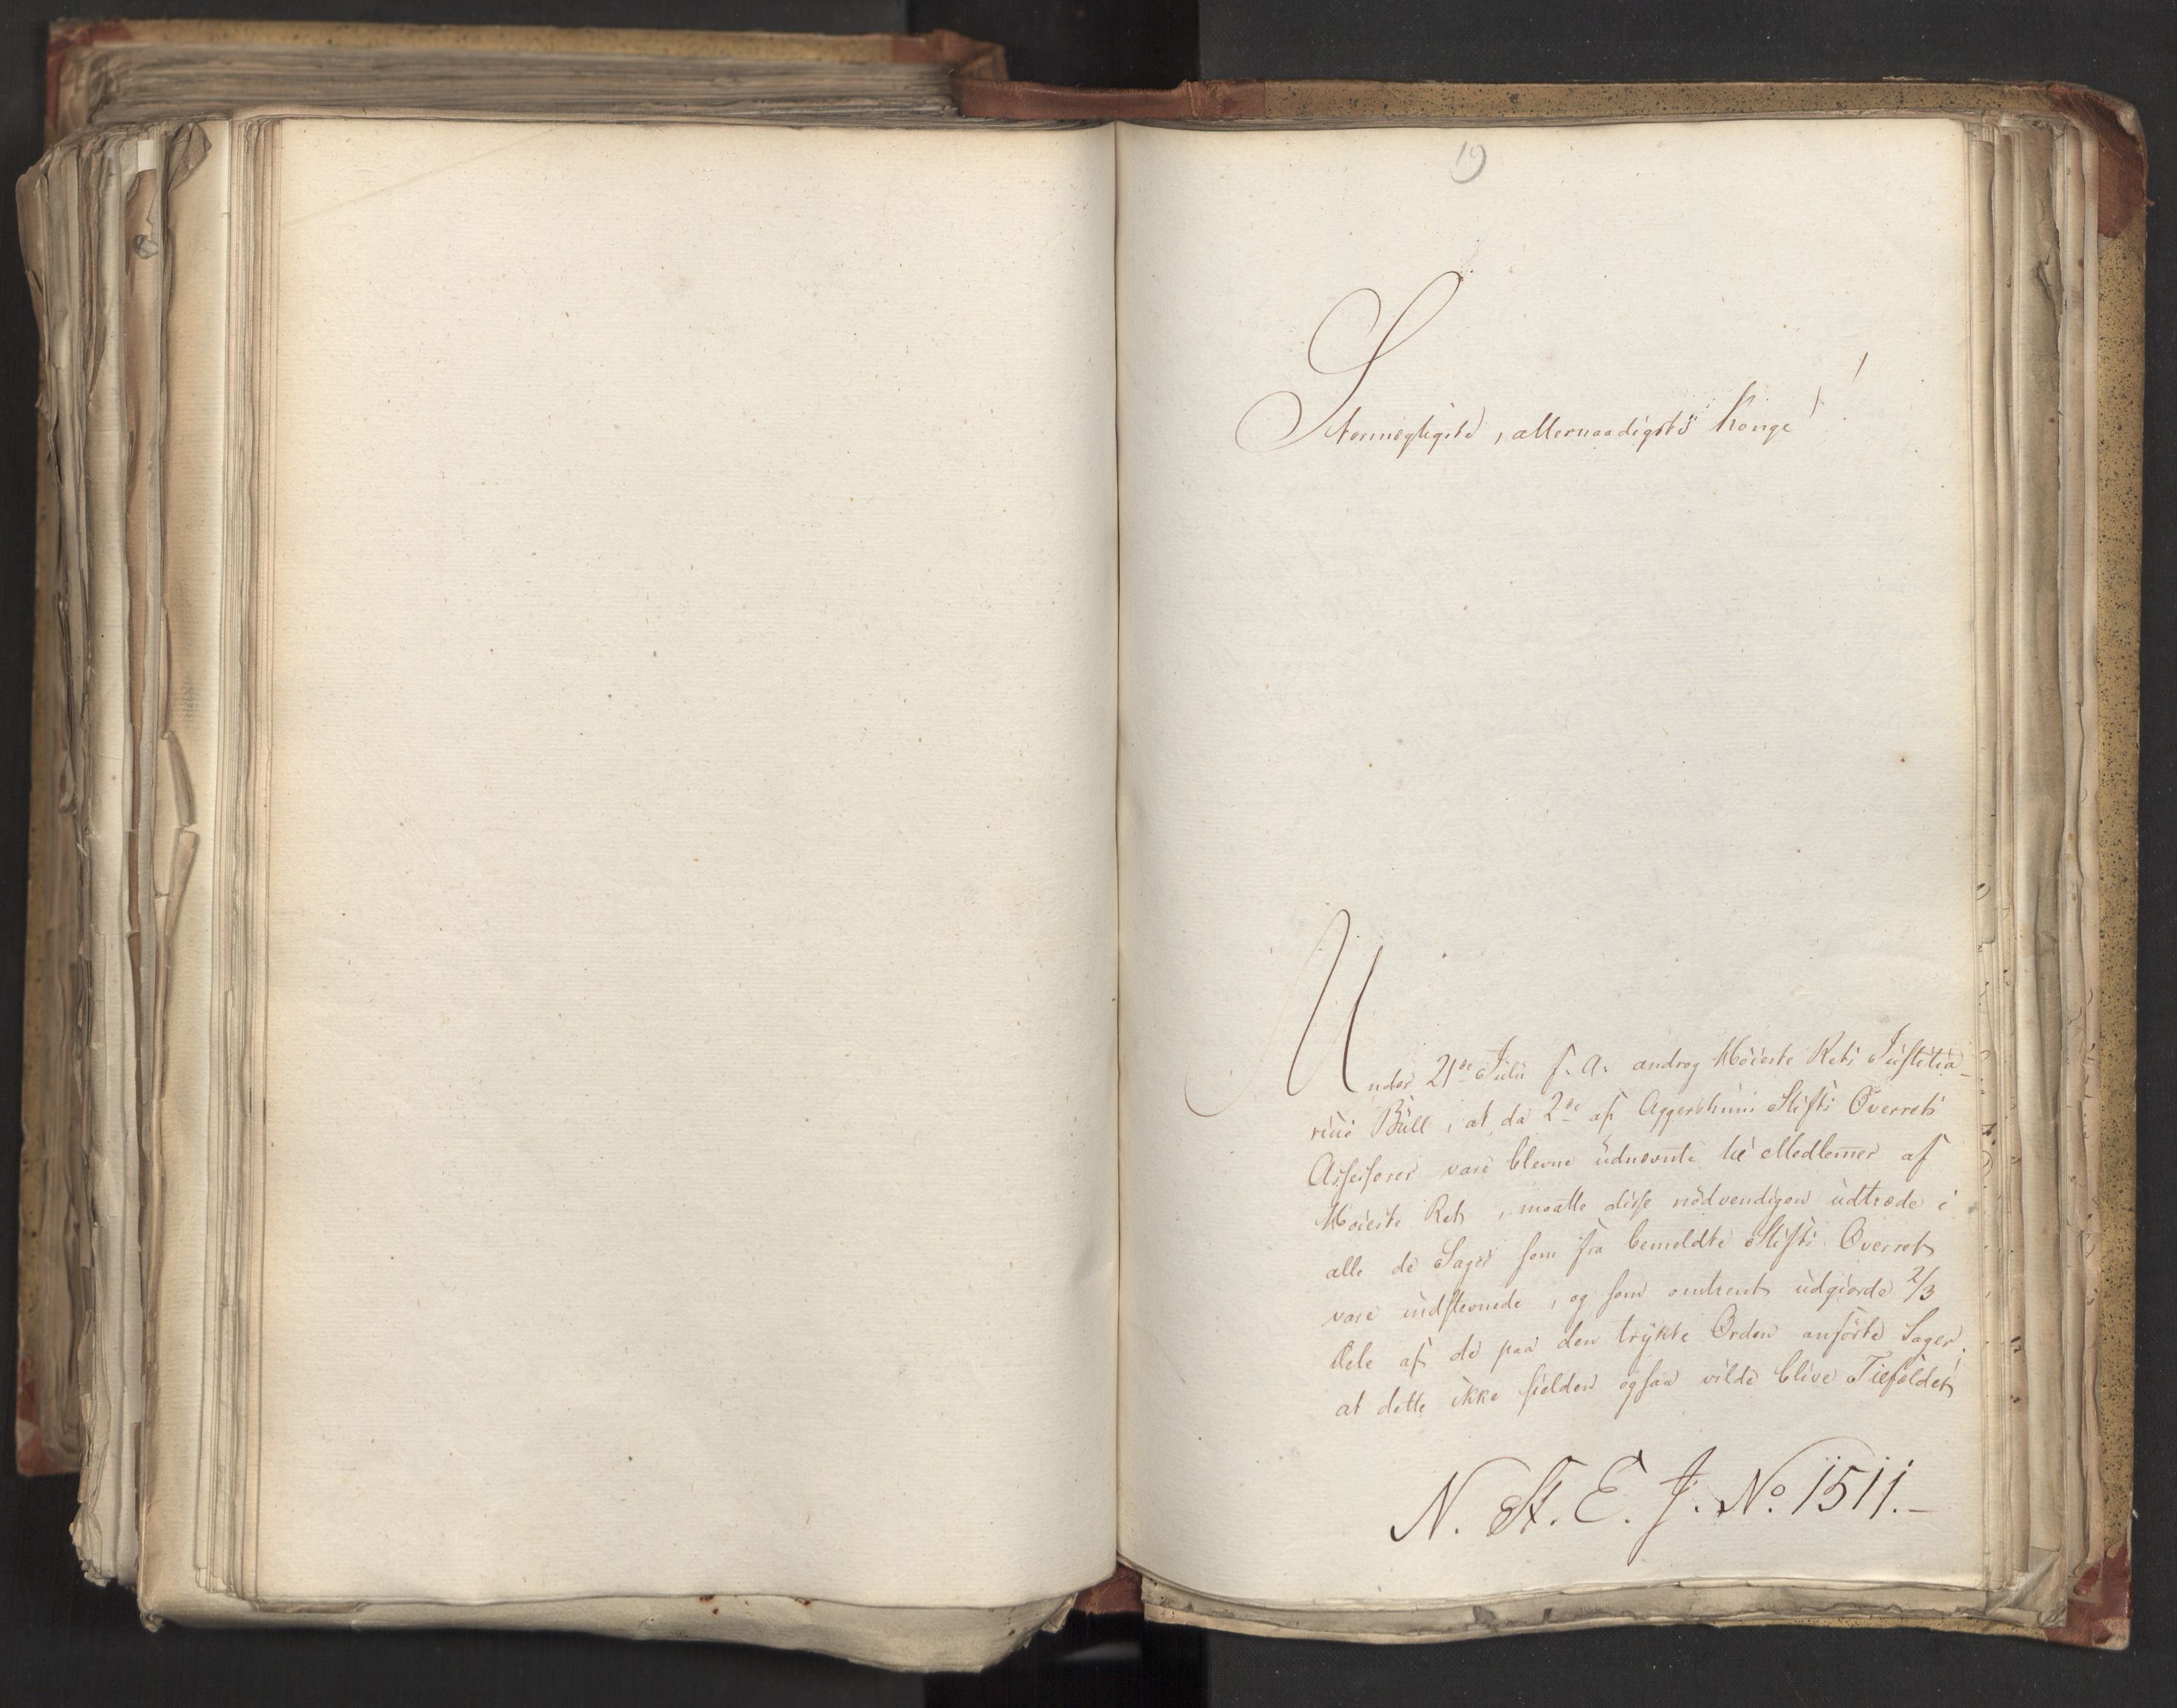 19
Stormægtigste, allernaadigste Konge!
Under 21de Julii f. A. androg Høieste Rets Justitia-
rius Bull, at da 2de af Aggershuus Stifts Overrets
Assessorer vare blevne udnævnte til Medlemer af
Høieste Ret, maatte disse nødvendigen udtræde i
alle de Sager som fra bemeldte Stifts Overret
vare indstevnede, og som omtrent udgiorde 2/3
Dele af de paa den trykte Orden anførte Sager.
at dette ikke sielden ogsaa vilde blive Tilfældet
N. St. E. J. No. 1511.-